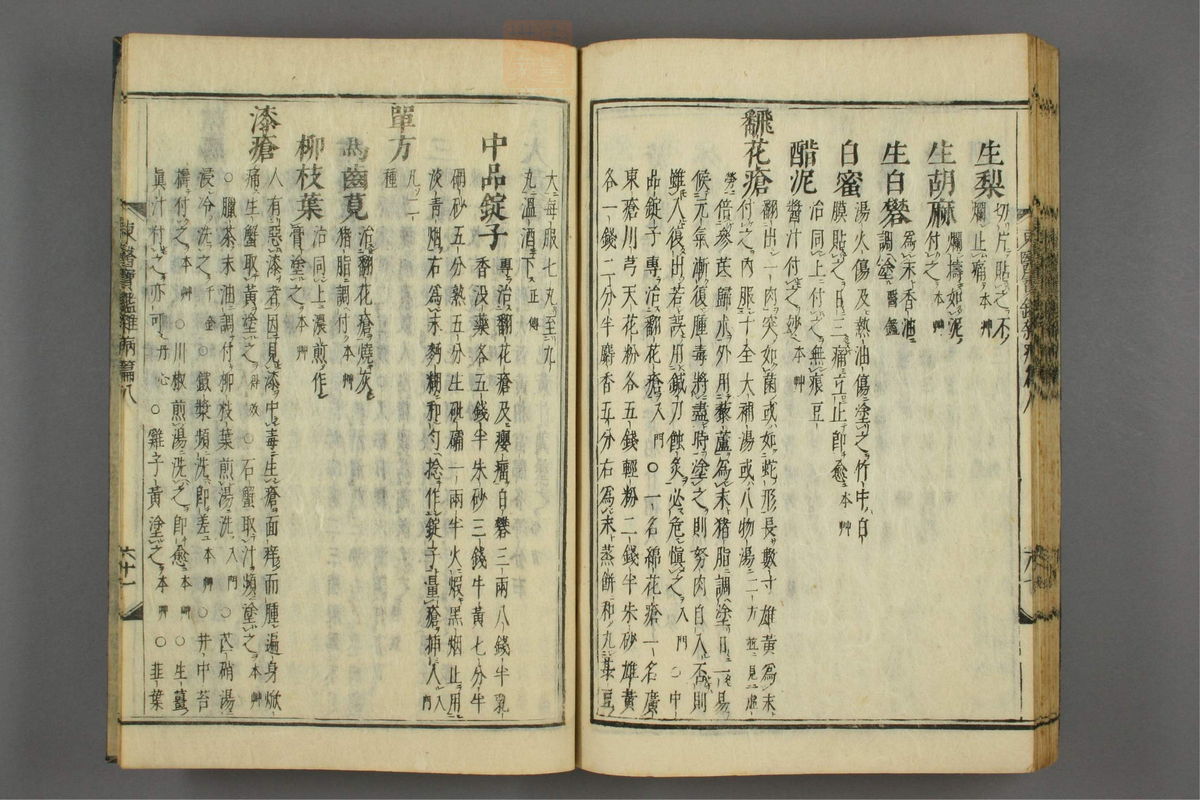 生梨 切片貼之不
爛止痛 本艸
生胡麻 爛擣如泥
付之 本艸
生白礬 為末香油
調塗 醫鑑
湯火傷及熱油傷塗之竹中白
白蜜 膜貼之日三痛立止卽愈 本艸
醋泥 治同上付之無痕豆
醬汁付之妙 本艸
飜花瘡 翻出一肉突如菌或如蛇形長數寸雄黃為末
付之內服十全大補湯或八物湯 二方並見虛
勞 倍參芪歸朮外用藜蘆為末猪脂調塗日一易
候元氣漸復腫毒將盡時塗之則努肉自入否則
雖入復出若誤用鍼刀蝕灸必危愼之 入門 ○中
品錠子專治翻花瘡 入門 ○一名綿花瘡一名廣
東瘡川芎天花粉各五錢輕粉二錢半朱砂雄黃
各一錢二分半麝香五分右為末蒸餅和丸菉豆
大每服七丸至九
丸溫酒下 正傳
中品錠子 專治翻花瘡及癭瘤白礬三兩八錢半乳
香沒藥各五錢半朱砂三錢牛黃七分半
硇砂五分熟五分生砒礵一兩半火煆黑烟止用
淡靑烟右為末麪糊和勻捻作錠子量瘡揷入 入門
單方 凡二
種
馬齒莧 治翻花瘡燒灰
猪脂調付 本艸
柳枝葉 治同上濃煎作
膏塗之 本艸
漆瘡 人有惡漆者因見漆中毒生瘡面痒而腫遍身焮
痛生蟹取黃塗之 ○石蟹取汁頻塗之 本艸
○臘茶末油調付柳枝葉煎湯洗 入門 ○芒硝湯
浸冷洗之 千金 ○鐵漿頻洗卽差 本艸 ○井中苔
擣付之 本艸 ○川椒煎湯洗之卽愈 本艸 ○生薑
眞汁付之亦可 丹心 ○雞子黃塗之 本艸 ○韭葉
東醫寶鑑雜病篇八
六十一